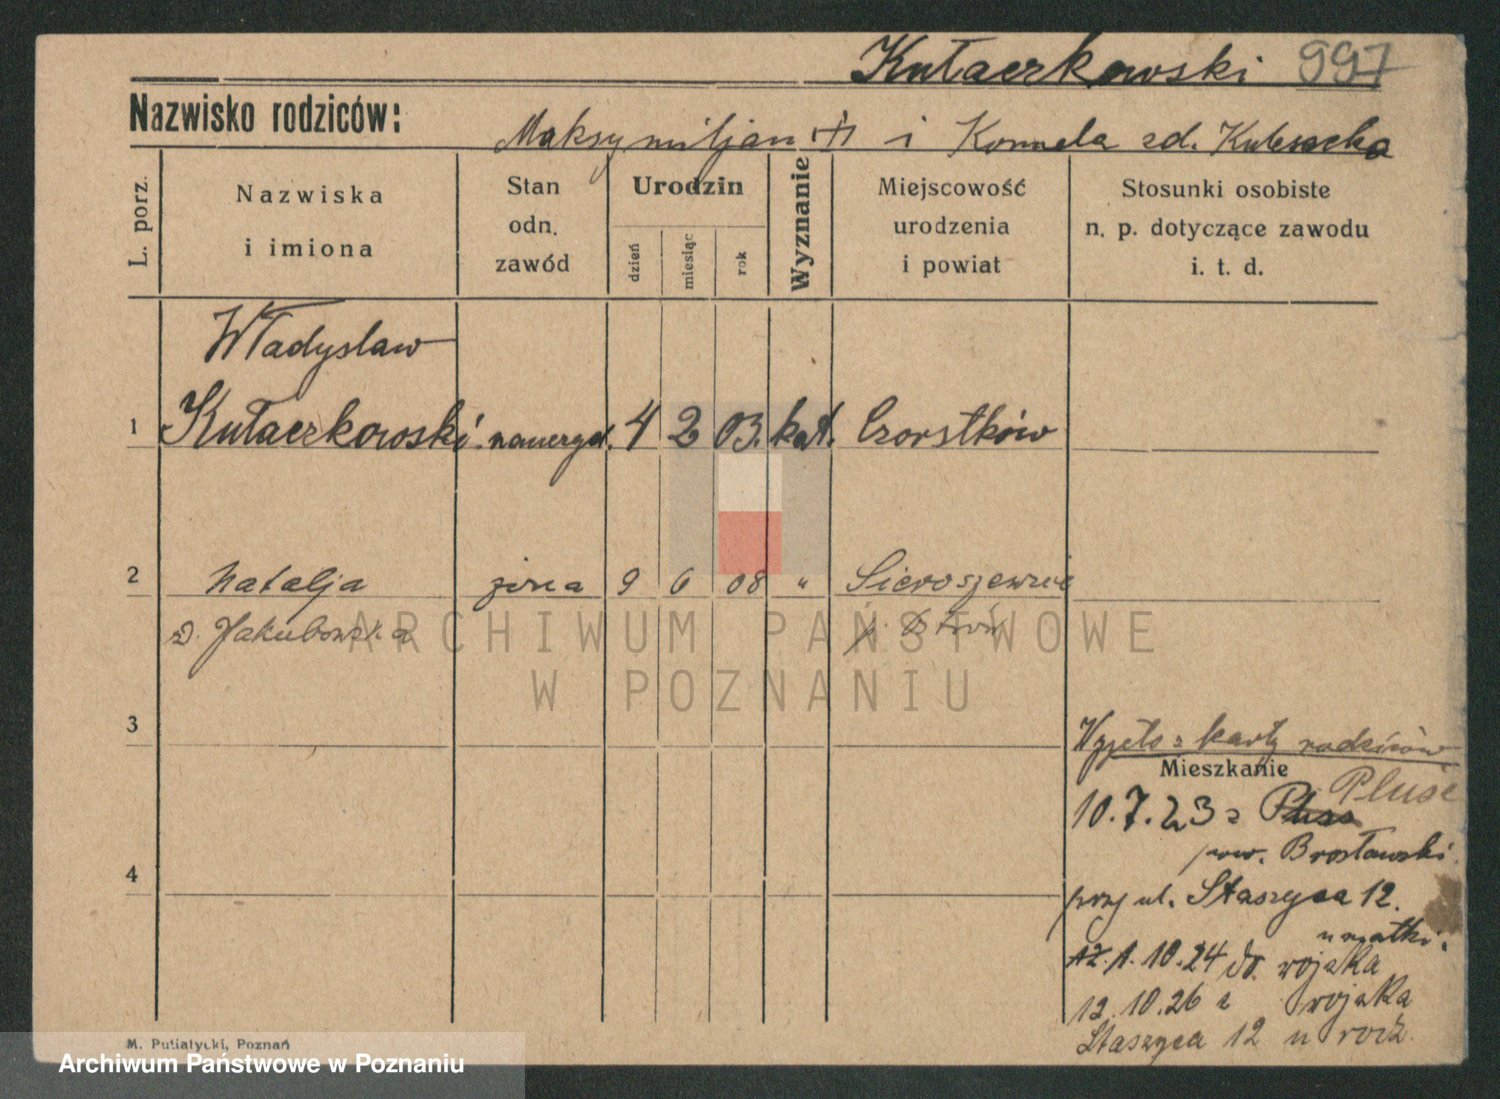 Kułaczkowski 997
Nazwisko rodziców:
Maksymiljan + i Kornela zd. Kulesacka
L. porz.
Nazwiska
i imiona
Stan
odn.
zawód
Urodzin
dzień
miesiąc
rok
Wyznanie
Miejscowość
urodzenia
i powiat
Stosunki osobiste
n. p. dotyczące zawodu
i. t. d.
Władysław
1 Kułaczkowski nauczyciel. 4 2 03. kat. Czorstków
2 Natalja żona 9 6 08 " Sieroszewice
z d. Jakubowska p. Ostrów
ARCHIWUM PAŃSTWOWE
W POZNANIU
3
Wyjęto z karty rodziców
Mieszkanie
10.7.23 z Pluse
pow. Brosławski
4
przy ul. Staszyca 12.
u matki.
12. 1. 10.24 do wojska
12.10.26 z wojska
Staszyca 12 u rodz.
M. Putiatycki, Poznań
Archiwum Państwowe w Poznaniu